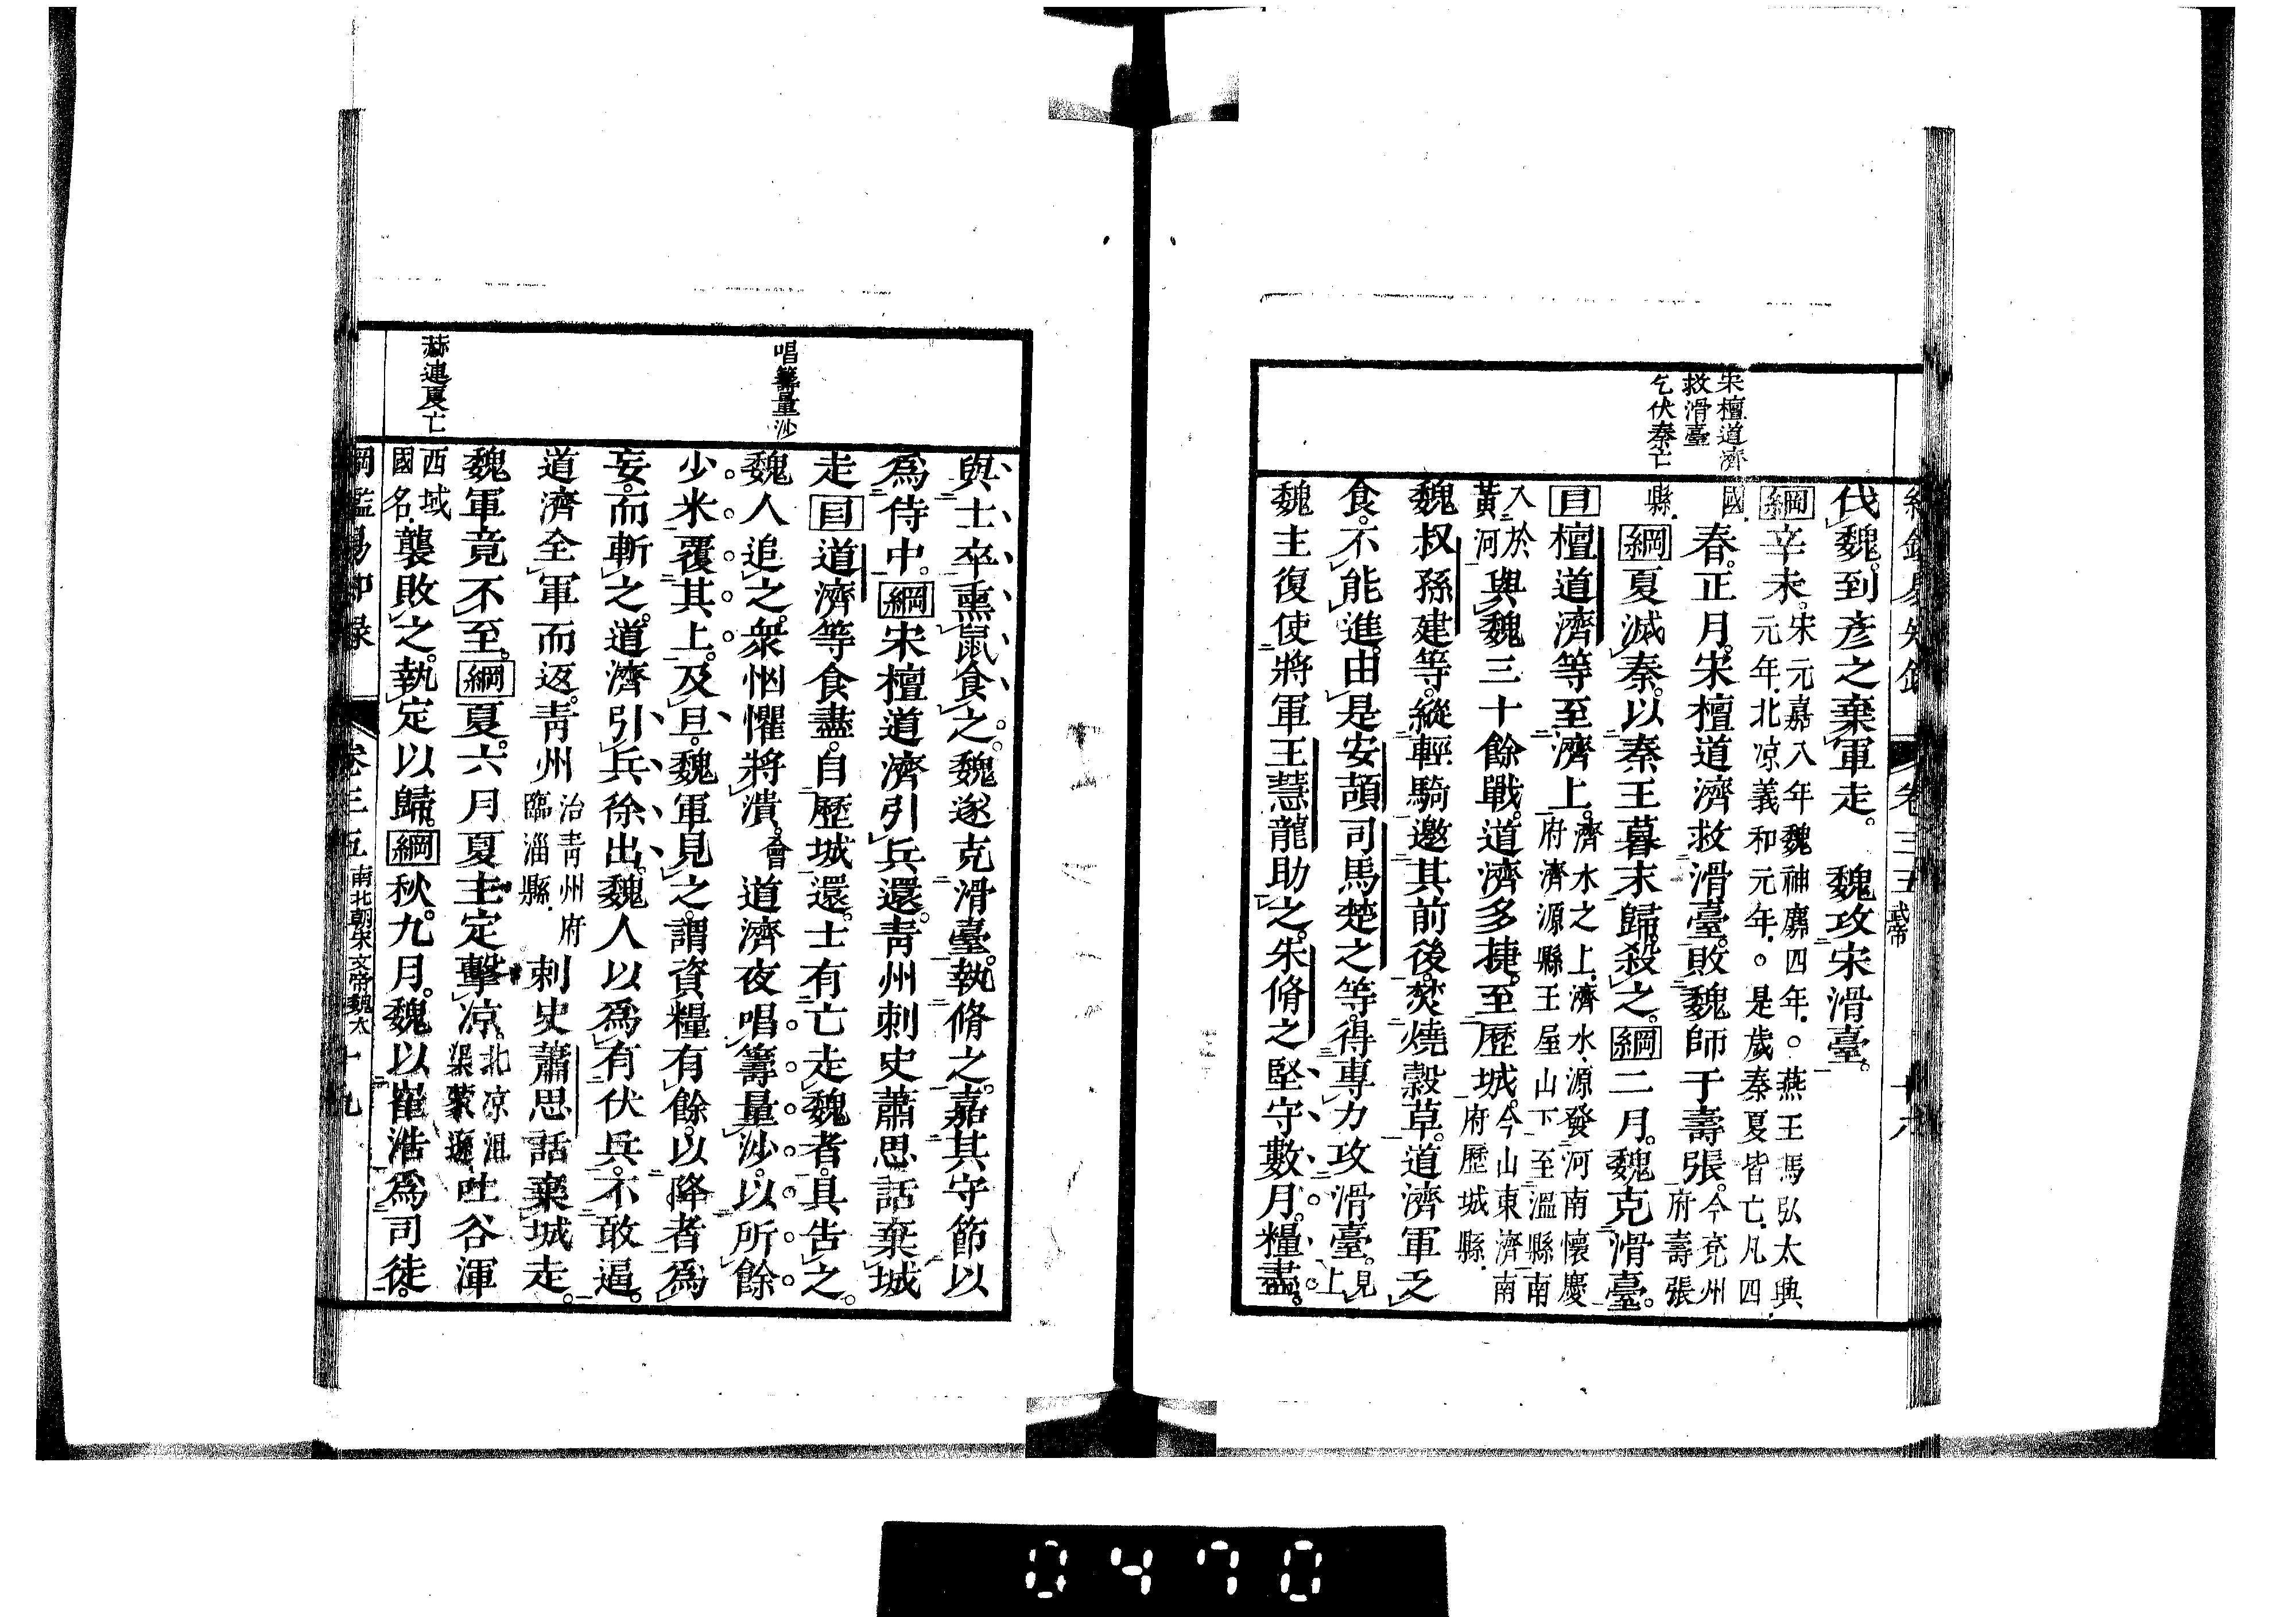 宋檀道濟
救滑臺
乞伏秦亡
伐魏。到彥之棄軍走。　魏攻宋滑臺。
綱辛未。宋元嘉八年魏神䴥四年。○燕王馮弘太興
元年。北凉義和元年。○是歲秦夏皆亡。凡四
國。春。正月。宋檀道濟救滑臺。敗魏師于壽張。今兖州
府壽張
縣。綱夏滅秦。以秦王暮末歸。殺之。綱二月。魏克滑臺。
目檀道濟等至濟上。濟水之上。濟水源發河南懷慶
府濟源縣王屋山下至溫縣南
入於
黃河與魏三十餘戰。道濟多捷。至歷城。今山東濟南
府歷城縣。
魏叔孫建等。縱輕騎邀其前後。焚燒穀草。道濟軍乏
食。不能進。由是安頡司馬楚之等。得專力攻滑臺。見上
魏主復使將軍王慧龍助之。朱脩之堅守數月。糧盡。
唱籌量沙
赫連夏亡
與士卒熏鼠食之。魏遂克滑臺。執脩之。嘉其守節以
爲侍中。綱宋檀道濟引兵還。靑州刺史蕭思話棄城
走目道濟等食盡。自歷城還。士有亡走魏者。具告之。
魏人追之。衆忷懼將潰。會道濟夜唱籌量沙。以所餘
少米覆其上。及旦。魏軍見之。謂資糧有餘。以降者爲
妄。而斬之。道濟引兵徐出。魏人以爲有伏兵。不敢逼。
道濟全軍而返。靑州治靑州府
臨淄縣。刺史蕭思話棄城走。
魏軍竟不至。綱夏。六月夏主定擊凉。北凉沮
渠蒙遜吐谷渾
西域
國名。襲敗之。執定以歸。綱秋。九月。魏以崔浩爲司徒。
南北朝宋文帝魏太
十九